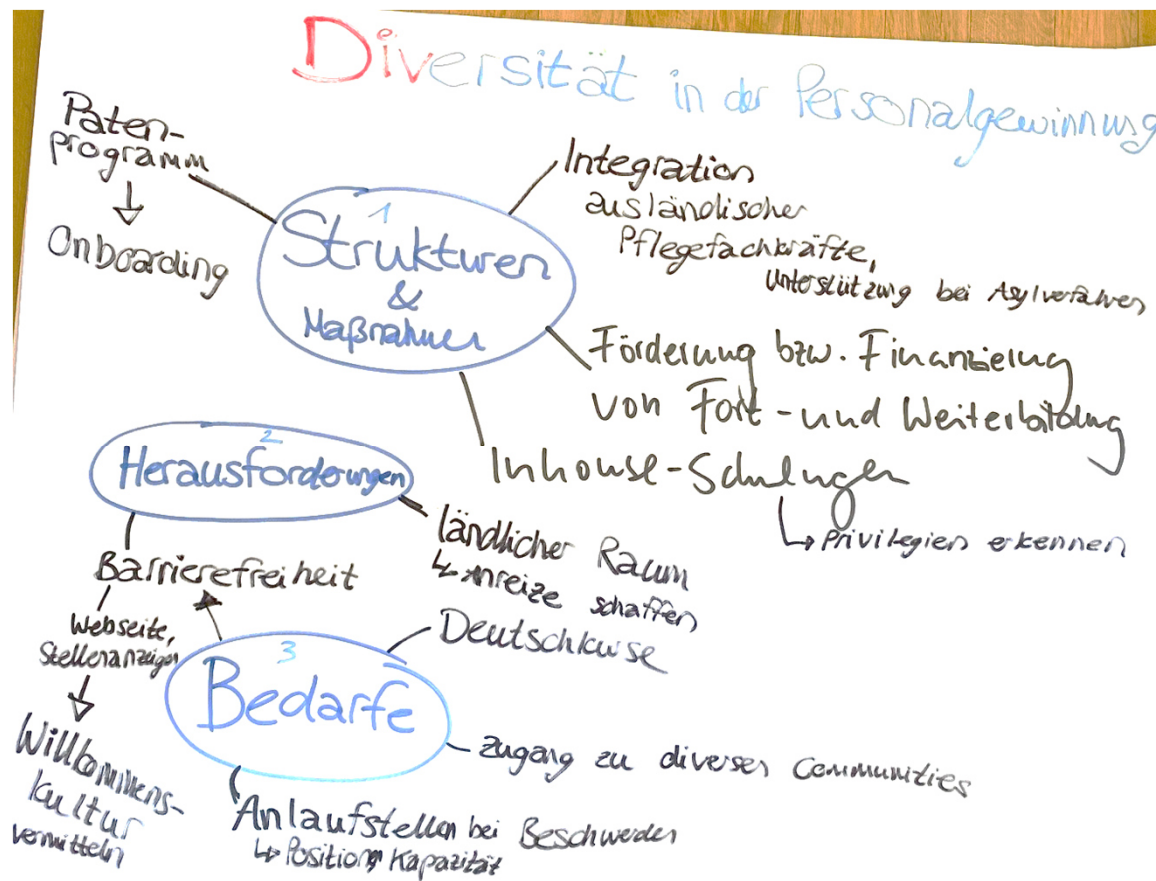 Diversität in der Personalgewinnung
Paten-
programm
↓
Onboarding
1
Strukturen
&
Maßnahmen
Integration
ausländischer
Pflegefachkräfte,
Unterstützung bei Asylverfahren
Förderung bzw. Finanzierung
von Fort- und Weiterbildung
Inhouse-Schulungen
↳ Privilegien erkennen
2
Herausforderungen
ländlicher Raum
↳ Anreize schaffen
Barrierefreiheit
Webseite,
Stellenanzeigen
↓
Willkommens-
kultur
vermitteln
3
Bedarfe
Deutschkurse
Zugang zu diversen Communities
Anlaufstellen bei Beschwerden
↳ Position, Kapazität